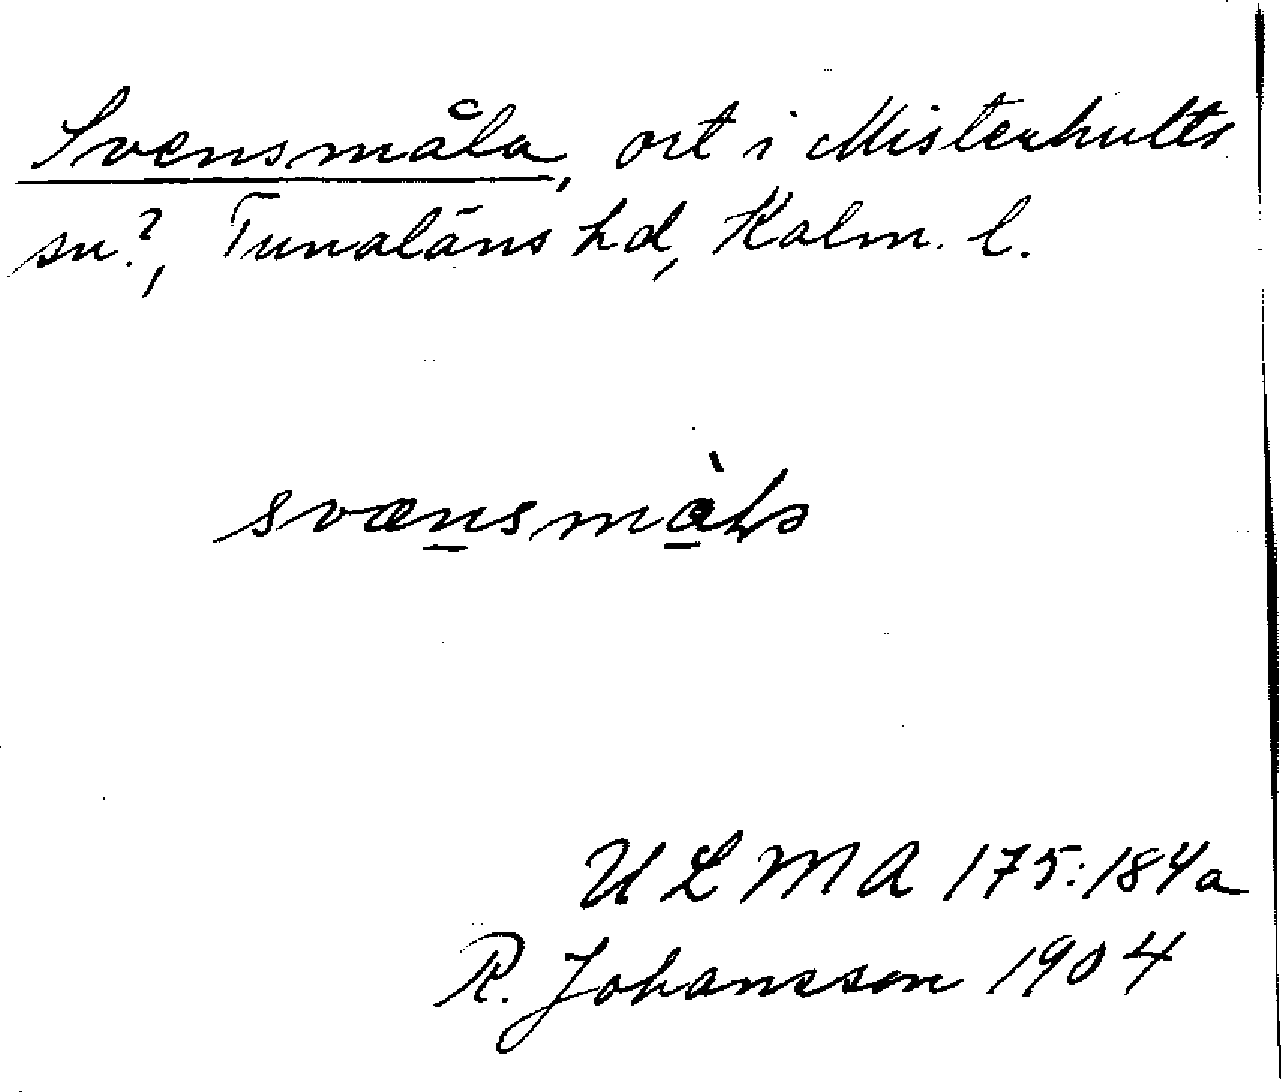 Svensmåla, ort i Misterhults
sn?, Tunaläns hd, Kalm. l.
UL MA 175:184a
R. Johansson 1904